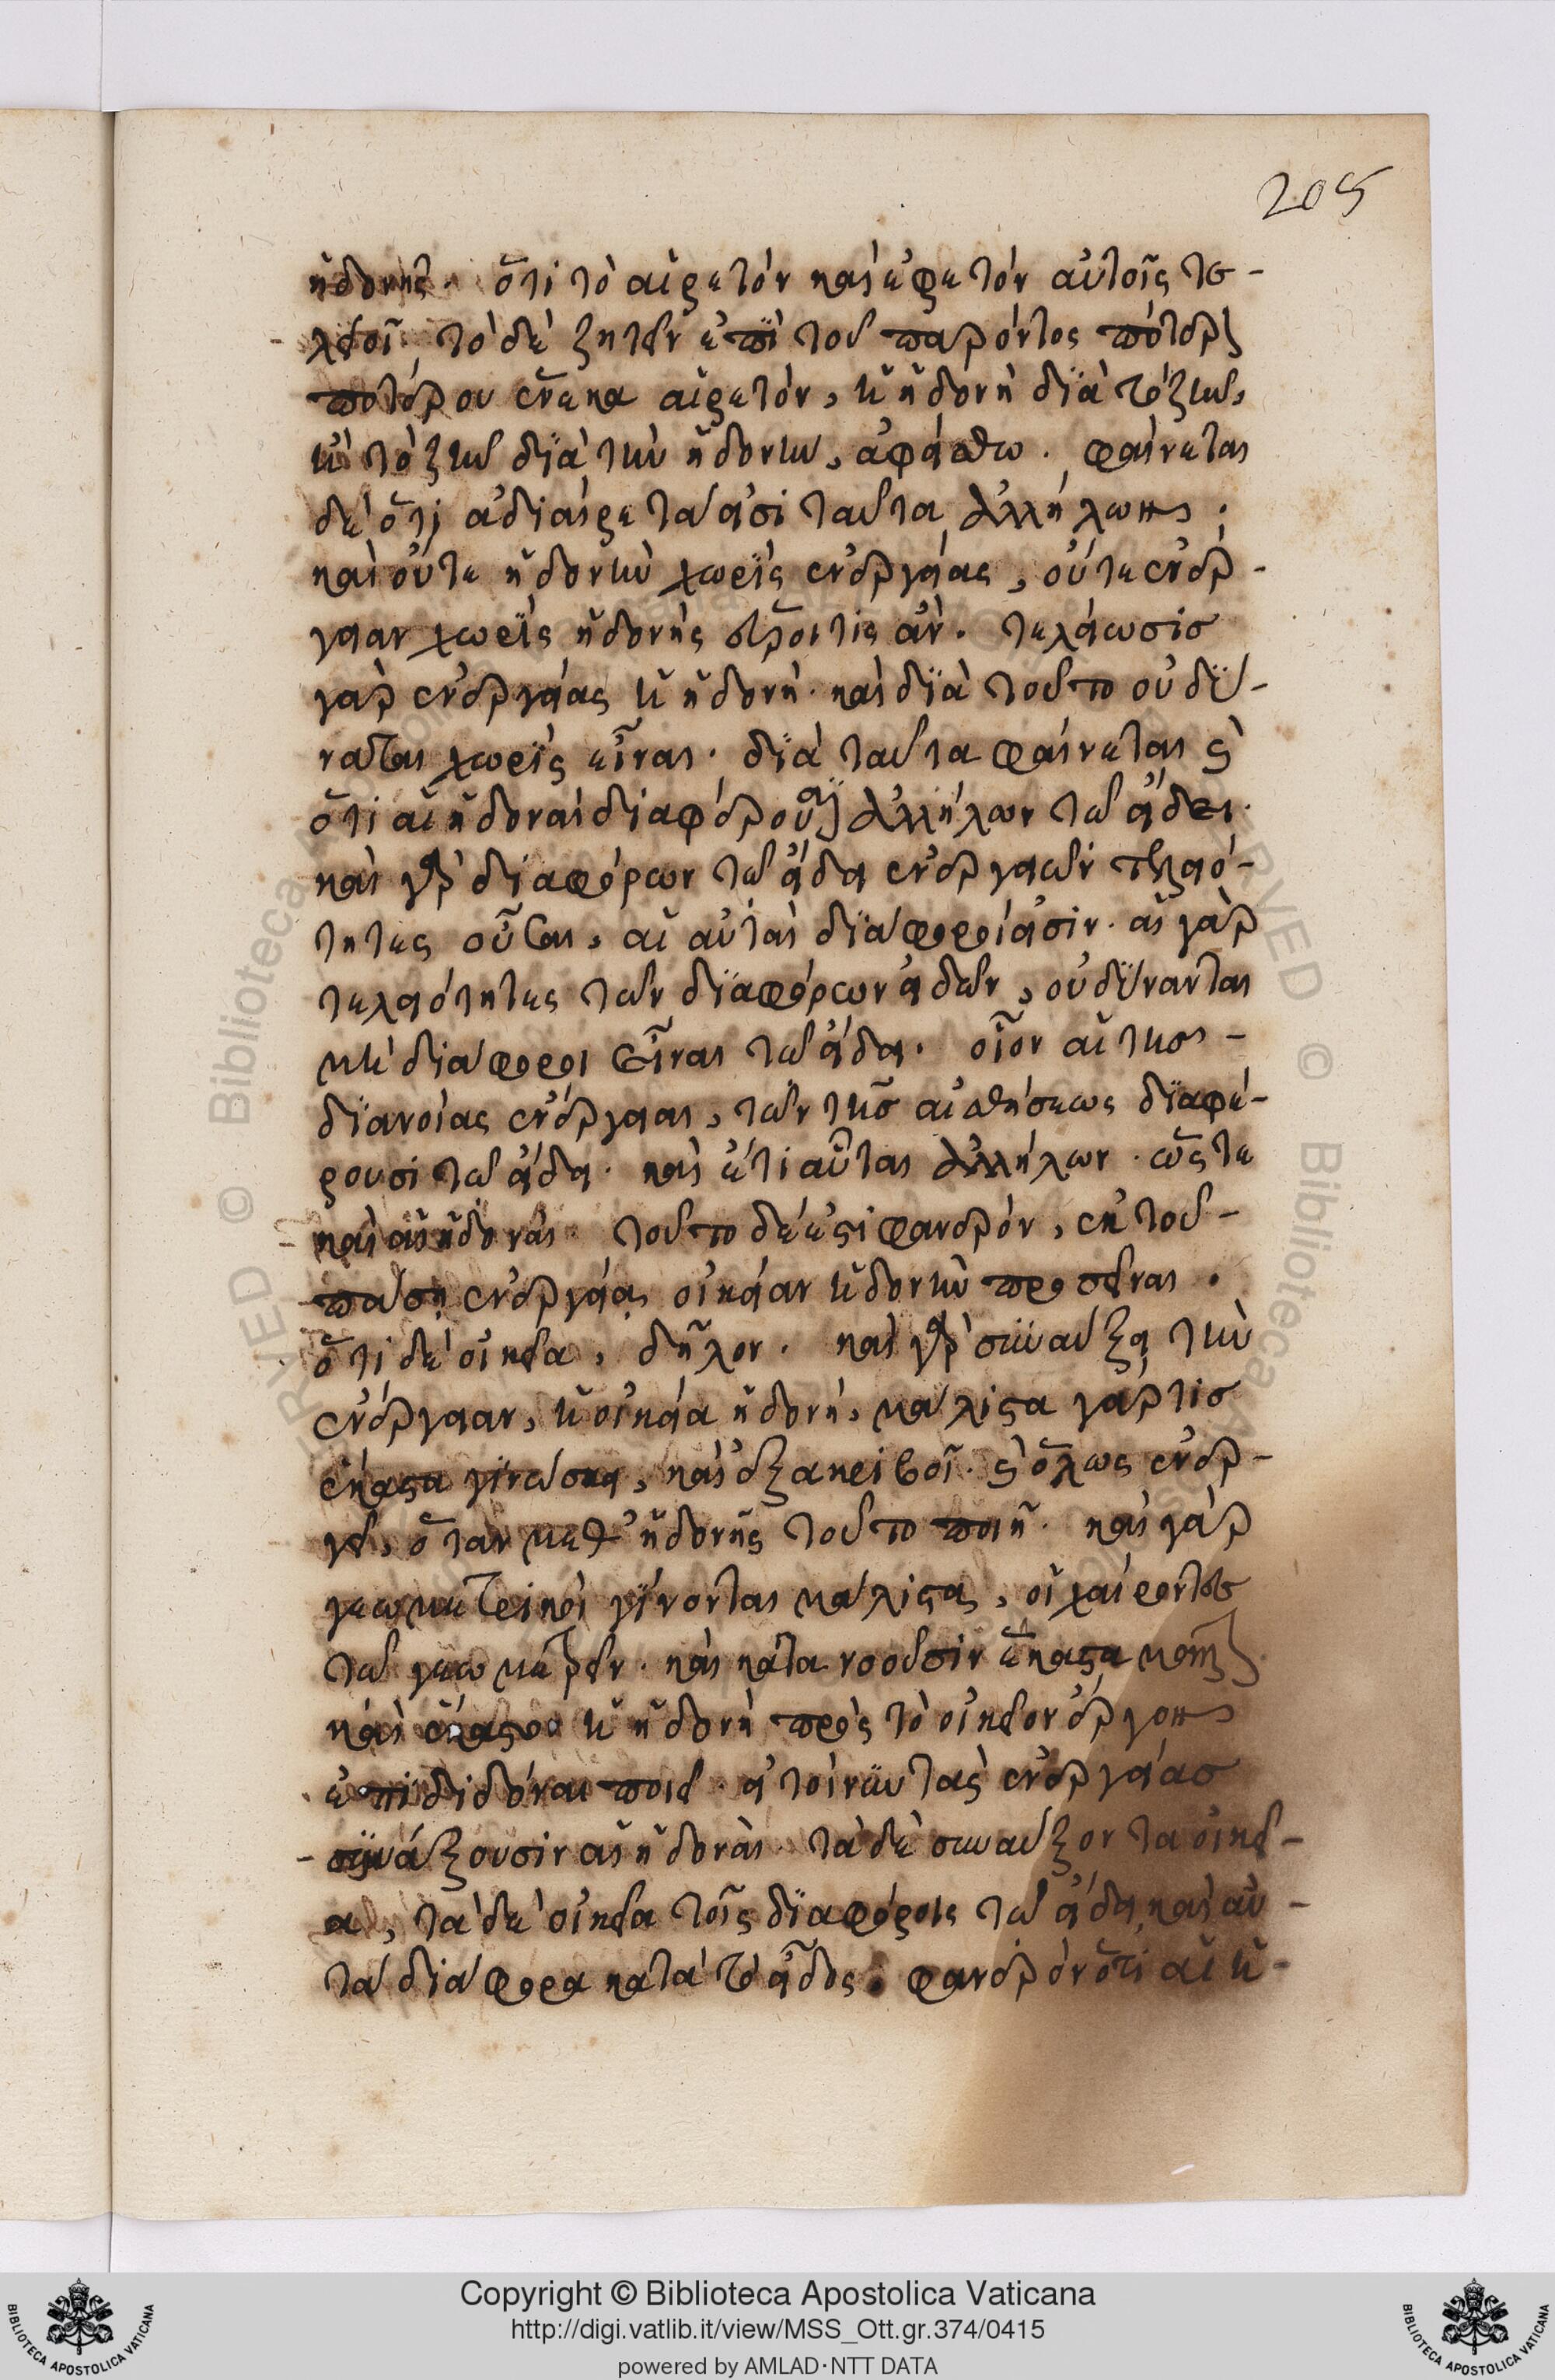 205
ἡδονῆς. ὅτι τὸ αἱρετόν καὶ ἐφετόν αὐτοῖς τε-
λειοῖ. τὸ δὲ ζητεῖν ἐπὶ τοῦ παρόντος πότερον
ποτέρου ἕνεκα αἱρετόν, ἡ ἡδονὴ διὰ τὸ ζῆν,
ἢ τὸ ζῆν διὰ τὴν ἡδονὴν, ἀφείσθω. φαίνεται
δὲ ὅτι ἀδιαίρετα εἰσὶ ταῦτα ἀλλήλων.
καὶ οὔτε ἡδονὴν χωρὶς ἐνεργείας, οὔτε ἐνέρ-
γειαν χωρὶς ἡδονῆς εὕροι τις ἄν. τελείωσις
γὰρ ἐνεργείας ἡ ἡδονή. καὶ διὰ τοῦτο οὐ δύ-
ναται χωρὶς εἶναι. διὰ ταῦτα φαίνεται καὶ
ὅτι αἱ ἡδοναὶ διαφέρουσιν ἀλλήλων τῶ εἴδει.
καὶ γὰρ διαφόρων τῶ εἴδει ἐνεργειῶν τελειό-
τητες οὖσαι, αἱ αὐταὶ διάφοροί εἰσιν. αἱ γὰρ
τελειότητες τῶν διαφόρων εἰδῶν, οὐ δύνανται
μὴ διάφοροι εἶναι τῶ εἴδει. οἷον αἱ τῆς
διανοίας ἐνέργειαι, τῶν τῆς αἰσθήσεως διαφέ-
ρουσι τῶ εἴδει. καὶ ἔτι αὗται ἀλλήλων. ὥστε
καὶ αἱ ἡδοναὶ. τοῦτο δέ ἐστι φανερόν, ἐκ τοῦ
πάσῃ ἐνεργείᾳ οἰκείαν ἡδονὴν προσεῖναι.
ὅτι δὲ οἰκεῖα, δῆλον. καὶ γὰρ συναύξει τὴν
ἐνέργειαν, ἡ οἰκεία ἡδονή, μάλιστα γάρ τις
ἕκαστα γινώσκει, καὶ ἐξακριβοῖ. καὶ ὅλως ἐνερ-
γεῖ, ὅταν μεθ' ἡδονῆς τοῦτο ποιῆ. καὶ γὰρ
γεωμετρικοὶ γίνονται μάλιστα, οἱ χαίροντες
τῶ γεωμετρεῖν. καὶ κατανοοῦσιν ἕκαστα μᾶλλον.
καὶ ἑκάστου ἡ ἡδονὴ πρὸς τὸ οἰκεῖον ἔργον
ἐπιδιδόναι ποιεῖ. εἰ τοίνυν τὰς ἐνεργείας
συναύξουσιν αἱ ἡδοναὶ. τὰ δὲ συναύξοντα οἰκεῖ-
α, τὰ δὲ οἰκεῖα τοῖς διαφόροις τῶ εἴδει, καὶ αὐ-
τὰ διάφορα κατὰ τὸ εἶδος. φανερὸν ὅτι αἱ ἡ-
Copyright © Biblioteca Apostolica Vaticana
http://digi.vatlib.it/view/MSS_Ott.gr.374/0415
powered by AMLAD·NTT DATA
BIBLIOTECA APOSTOLICA VATICANA
BIBLIOTECA APOSTOLICA VATICANA